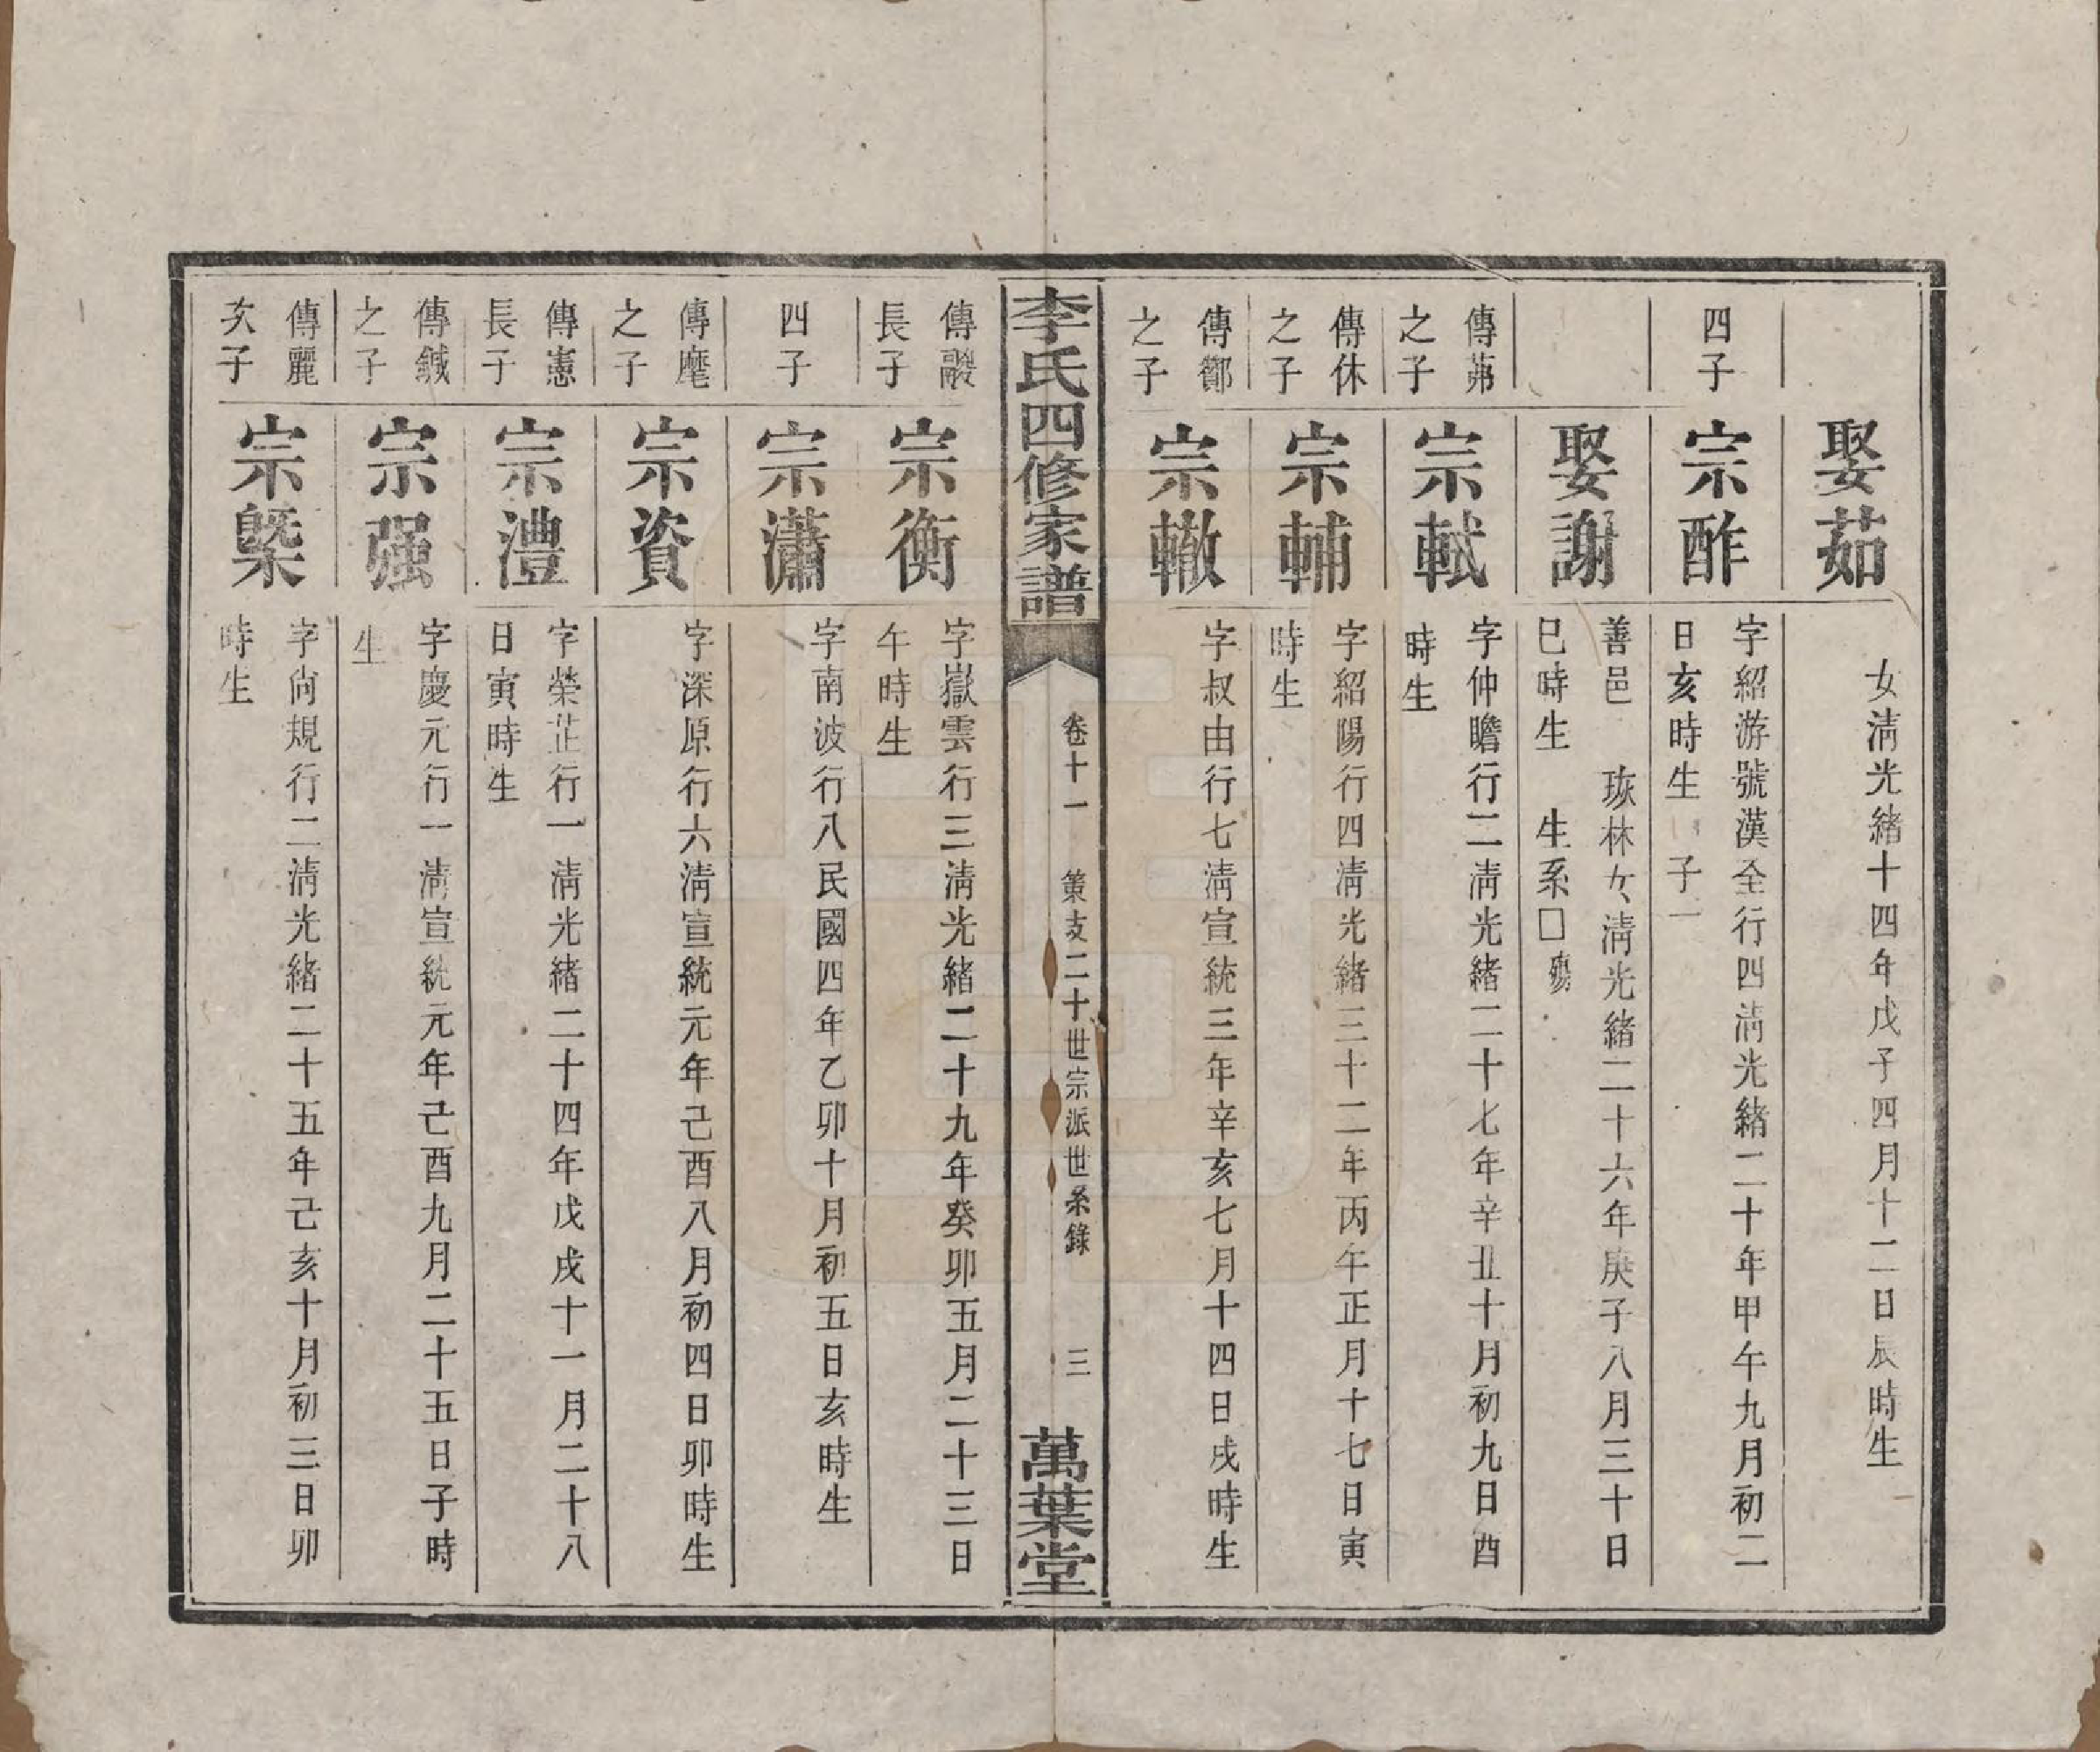 娶茹
女淸光緖十四年戊子四月十二日辰時生
四子
宗酢
字紹游號漢全行四淸光緖二十年甲午九月初二
日亥時生 子一
娶謝
善邑 珎林女淸光緖二十六年庚子八月三十日
巳時生 生系□殤
傳茀
之子
宗軾
字仲瞻行二淸光緖二十七年辛丑十月初九日酉
時生
傳休
之子
宗輔
字紹陽行四淸光緖三十二年丙午正月十七日寅
時生
傳酇
之子
宗轍
字叔由行七淸宣統三年辛亥七月十四日戌時生
李氏四修家譜
卷十一 策支二十世宗派世系錄 三
萬葉堂
傳
長子
宗衡
字嶽雲行三淸光緖二十九年癸卯五月二十三日
午時生
四子
宗瀟
字南波行八民國四年乙卯十月初五日亥時生
傳麾
之子
宗資
字深原行六淸宣統元年己酉八月初四日卯時生
傳憲
長子
宗澧
字榮芷行一淸光緖二十四年戊戌十一月二十八
日寅時生
傳鍼
之子
宗强
字慶元行一淸宣統元年己酉九月二十五日子時
生
傳麗
次子
宗槩
字尙規行二淸光緖二十五年己亥十月初三日卯
時生